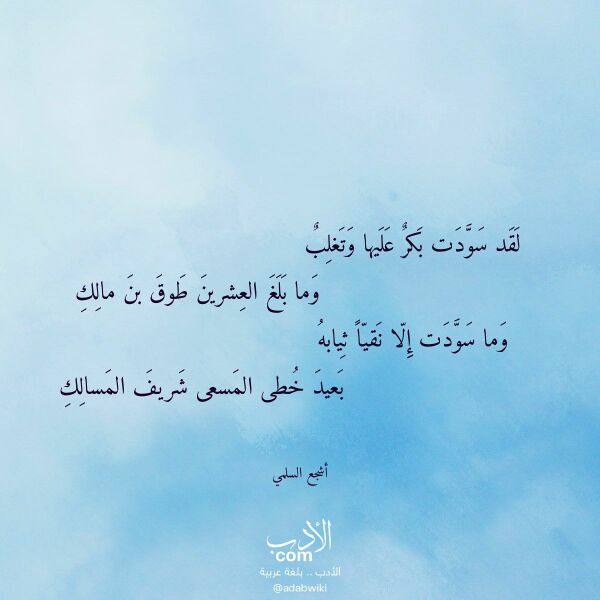 لَقَد سَوَّدَت بَكرٌ عَلَيها وَتَغلِبٌ
وَما بَلَغَ العِشرينَ طَوقَ بنَ مالِكِ
وَما سَوَّدَت إِلّا نَقيّاً ثِيابهُ
بَعيدَ خُطى المَسعى شَريفَ المَسالِكِ
أشجع السلمي
الأدب
com
الأدب .. بلغة عربية
@adabwiki